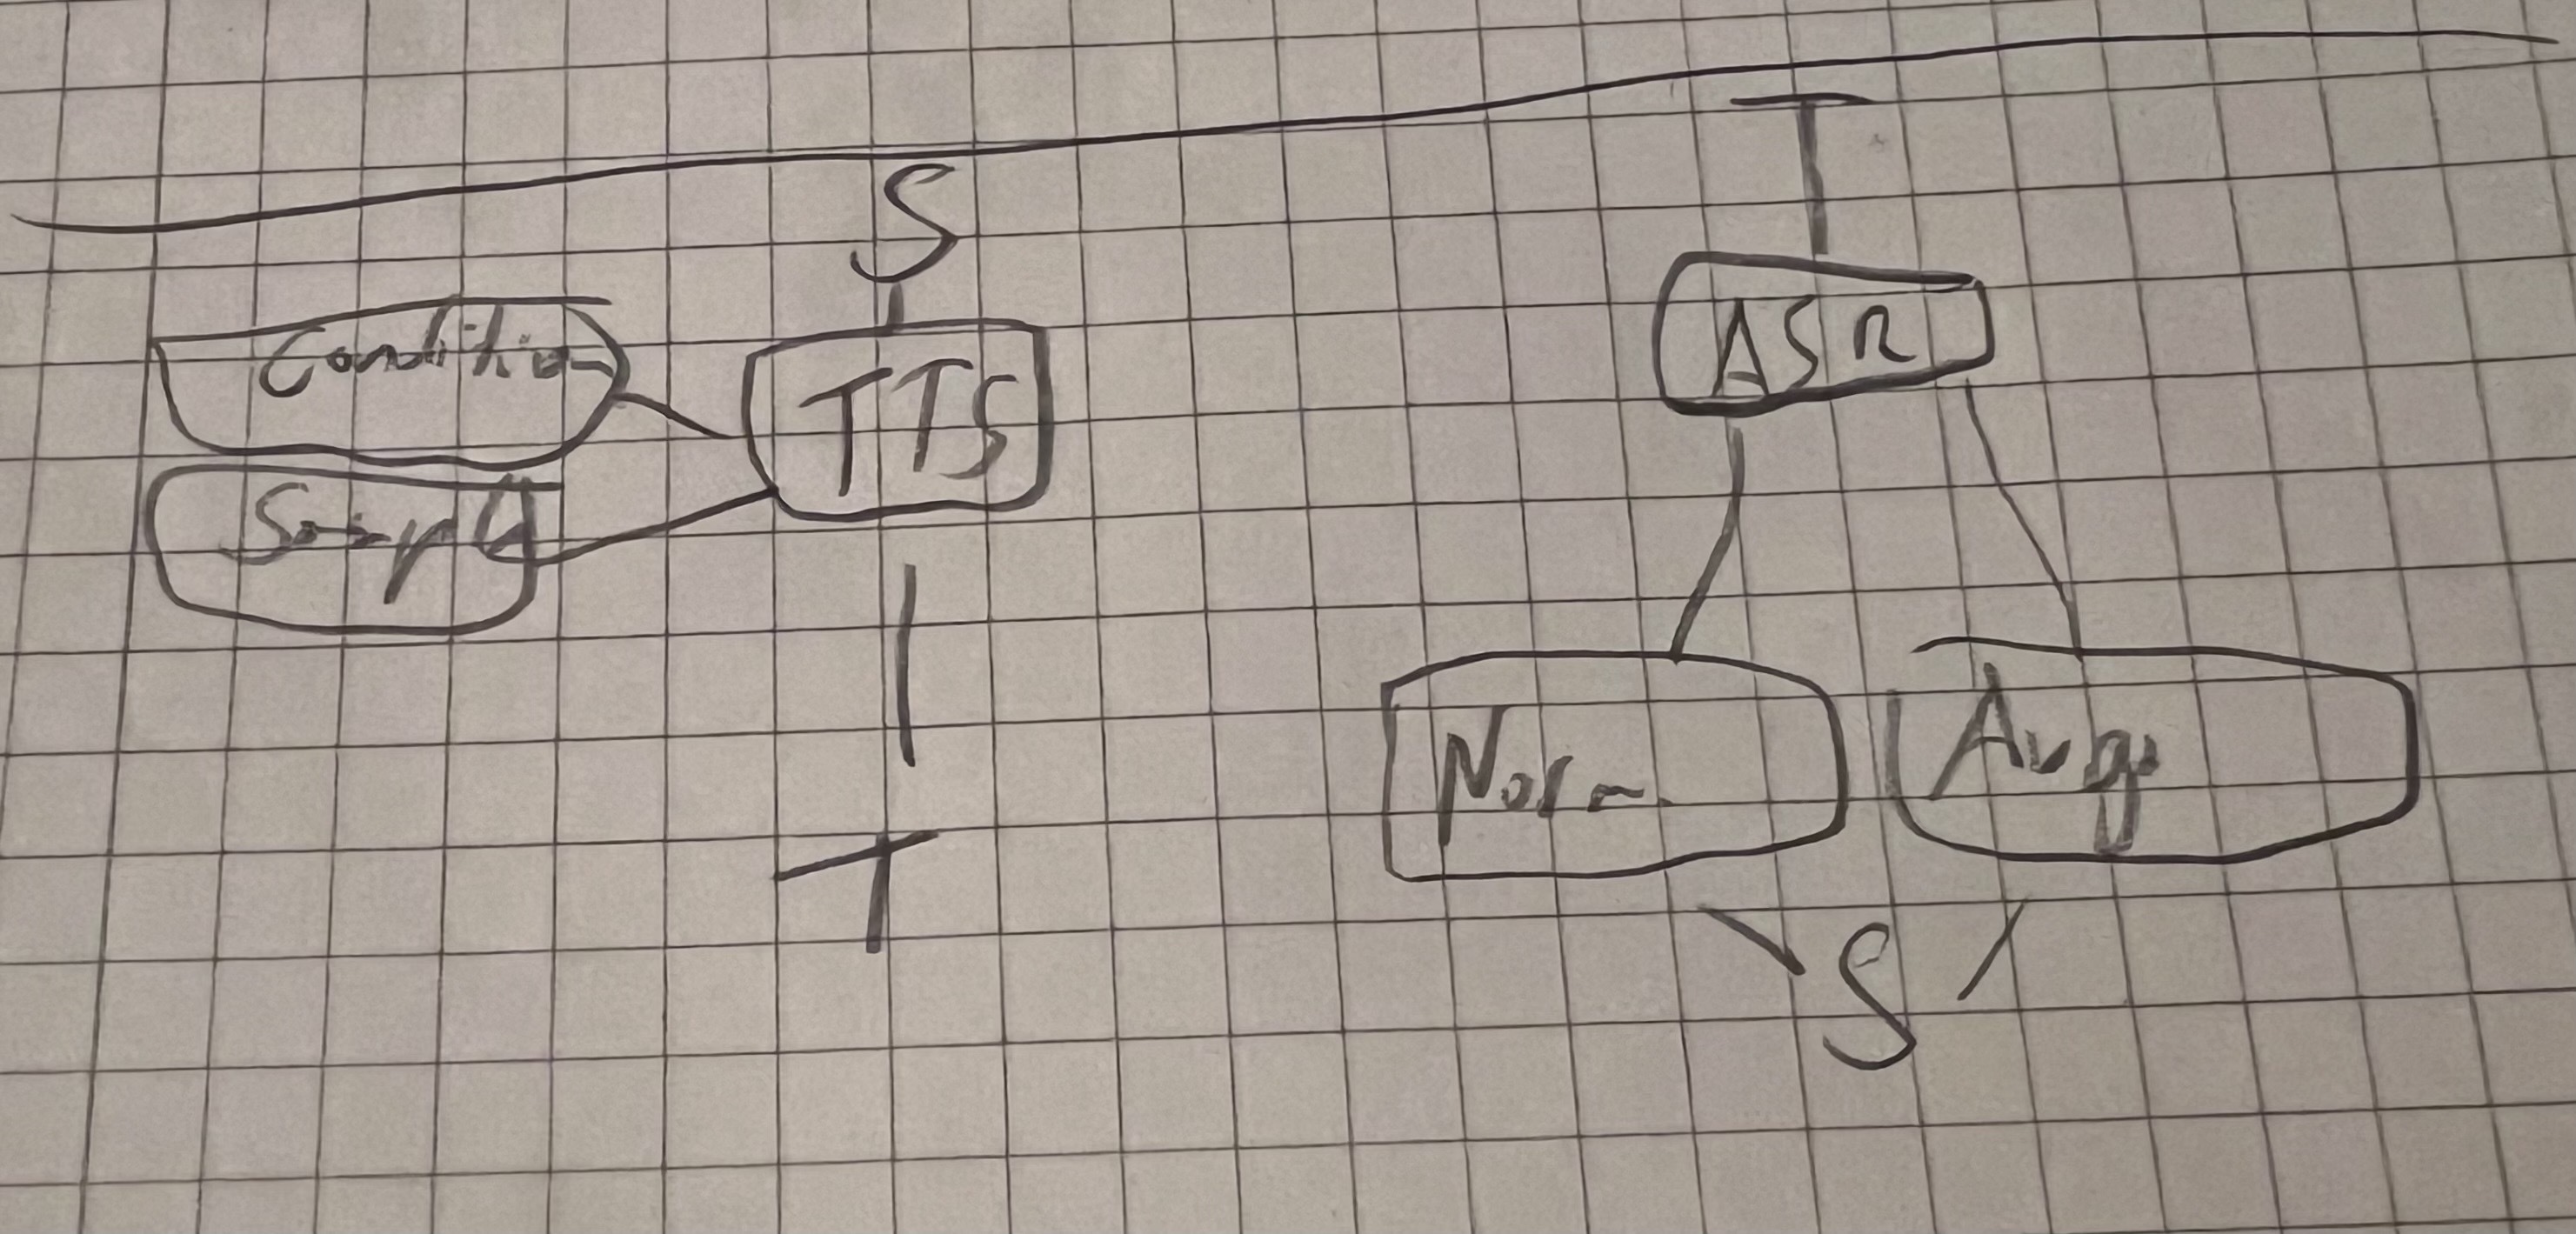 S
Condition
TTS
Sample
T
T
ASR
Norm.
Aug
S